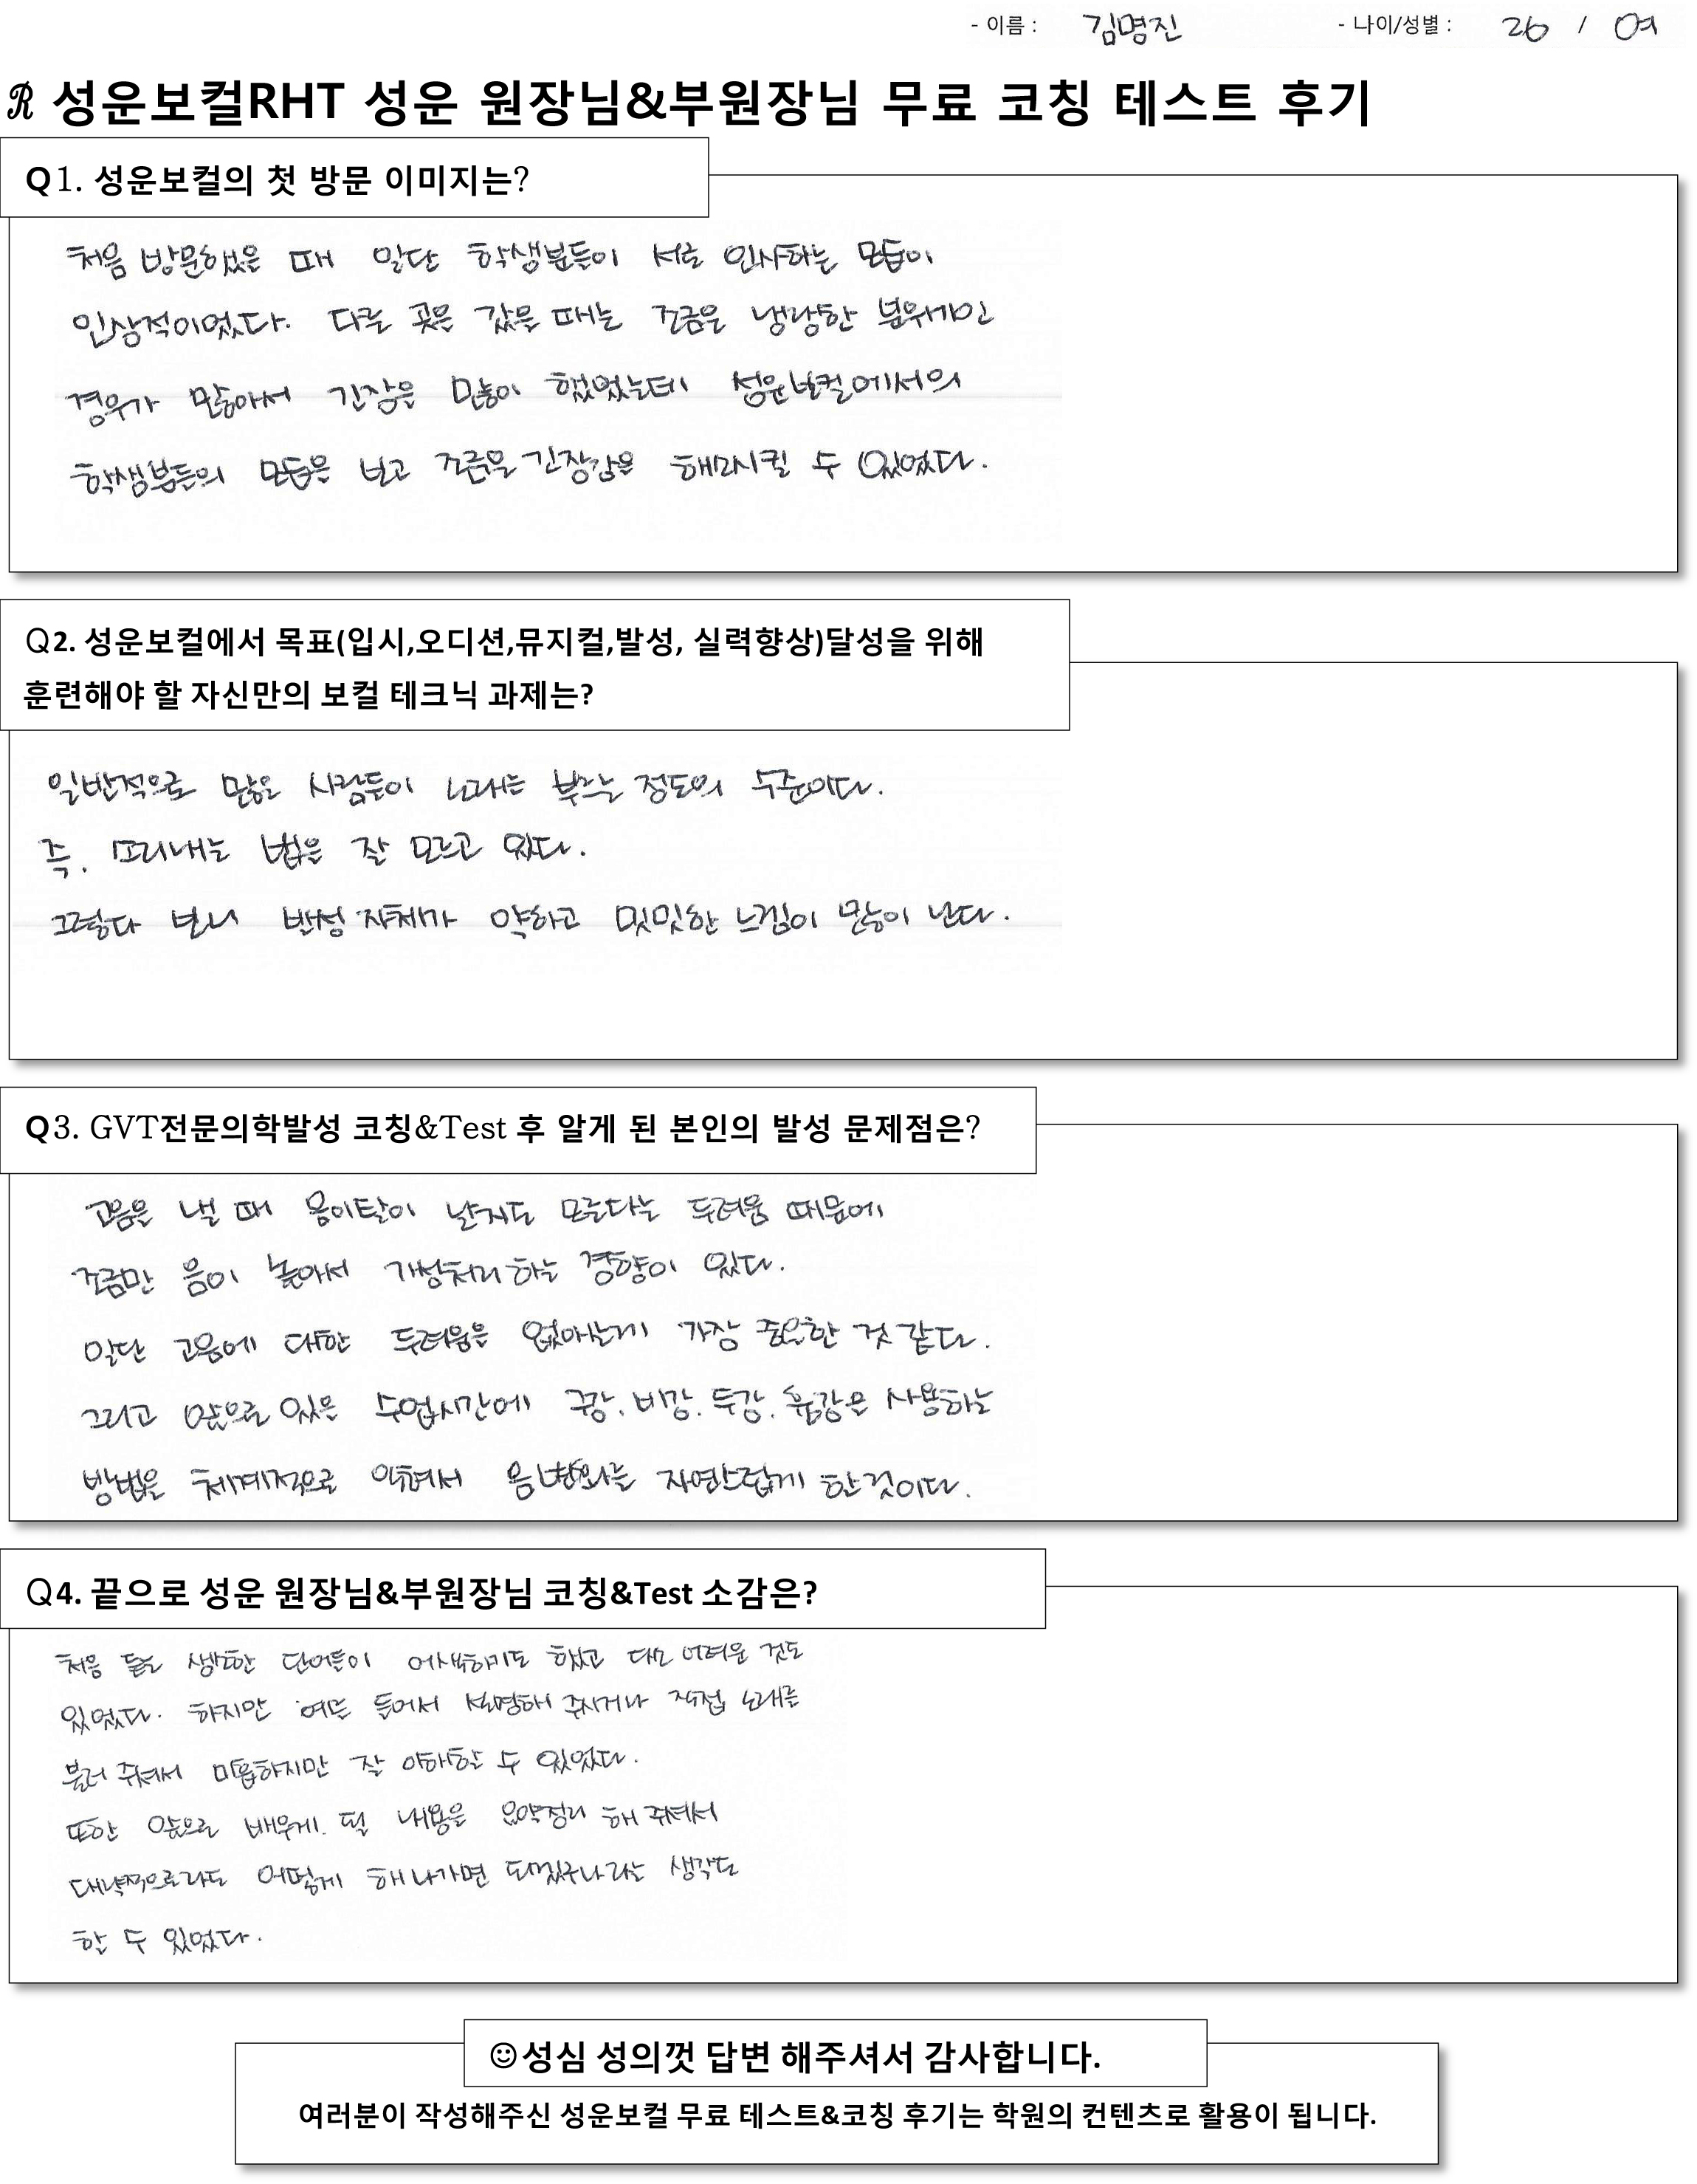 - 이름 : 김명진 - 나이/성별 : 26 / 여
R 성운보컬RHT 성운 원장님&부원장님 무료 코칭 테스트 후기
Q1. 성운보컬의 첫 방문 이미지는?
처음 방문했을 때 일단 학생분들이 서로 인사하는 모습이
인상적이었다. 다른 곳은 갔을 때는 조금은 냉랭한 분위기인
경우가 많아서 긴장을 많이 했었는데 성운보컬에서의
학생분들의 모습을 보고 조금은 긴장감을 해소시킬 수 있었다.
Q2. 성운보컬에서 목표(입시,오디션,뮤지컬,발성, 실력향상)달성을 위해
훈련해야 할 자신만의 보컬 테크닉 과제는?
일반적으로 많은 사람들이 노래는 부르는 정도의 수준이다.
즉, 소리내는 법을 잘 모르고 있다.
그렇다 보니 발성 자체가 약하고 밋밋한 느낌이 많이 난다.
Q3. GVT전문의학발성 코칭&Test 후 알게 된 본인의 발성 문제점은?
고음을 낼 때 음이탈이 날지도 모른다는 두려움 때문에
조금만 음이 높아서 가성처리 하는 경향이 있다.
일단 고음에 대한 두려움을 없애는게 가장 중요한 것 같다.
그리고 앞으로 있을 수업시간에 구강, 비강, 두강, 흉강을 사용하는
방법을 체계적으로 익혀서 음변화를 자연스럽게 할것이다.
Q4. 끝으로 성운 원장님&부원장님 코칭&Test 소감은?
처음 듣는 생소한 단어들이 어색하기도 했고 다소 어려운 것도
있었다. 하지만 예를 들어서 설명해 주시거나 직접 노래를
불러 주셔서 미흡하지만 잘 이해할 수 있었다.
또한 앞으로 배우게 될 내용을 요약정리 해 주셔서
대략적으로라도 어떻게 해 나가면 되겠구나라는 생각도
할 수 있었다.
☺성심 성의껏 답변 해주셔서 감사합니다.
여러분이 작성해주신 성운보컬 무료 테스트&코칭 후기는 학원의 컨텐츠로 활용이 됩니다.